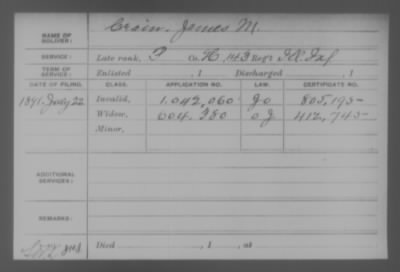 NAME OF SOLDIER: Crain, James M.
SERVICE: Late rank, P Co. H, 143 Reg't Inf
TERM OF SERVICE: Enlisted , 1 Discharged , 1
DATE OF FILING. CLASS. APPLICATION NO. LAW. CERTIFICATE NO.
1891, July 22 Invalid, 1.042,060 805,195
Widow, 604,380 O J 412,745
Minor,
ADDITIONAL SERVICES:
REMARKS:
Died , 1 , at